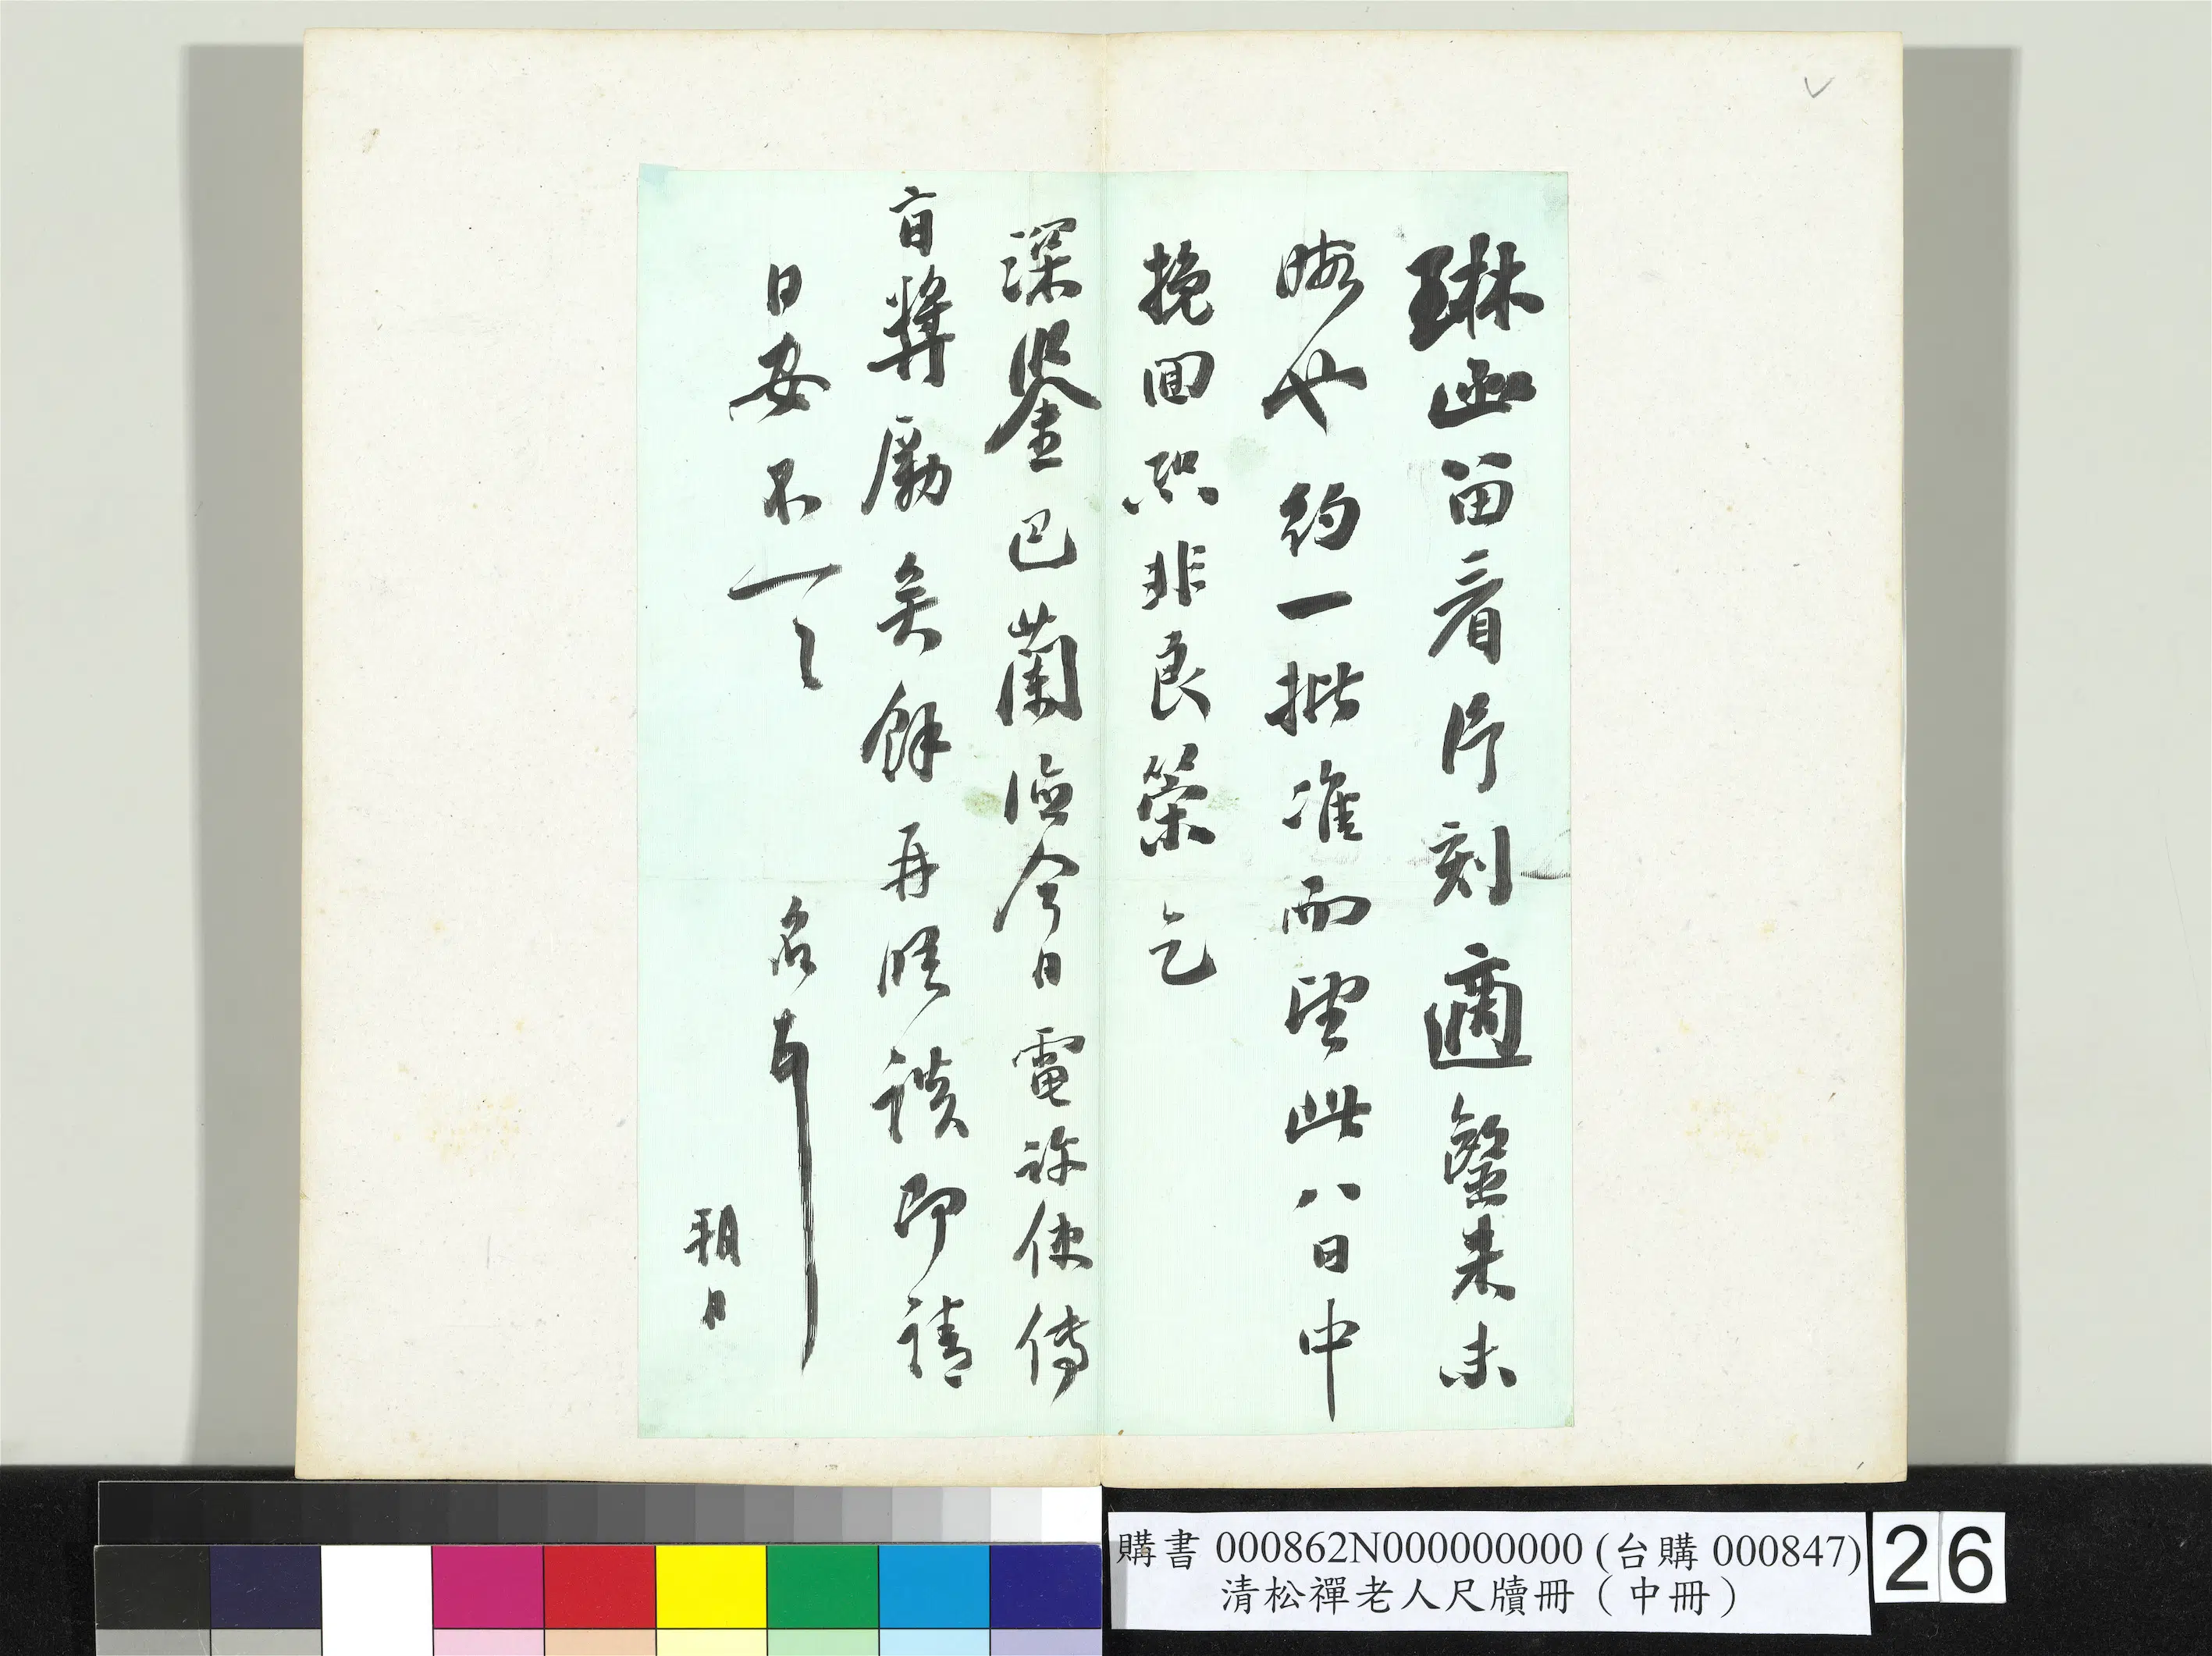 琳函留看片刻適未
晦也約一批准而望此八日中
挽回恐非良策乞
深鑒巴蘭德今日電称使傳
旨獎勵矣餘再晤談即請
日安不一一
名
朔日
購書 000862N000000000 (台購 000847)
清松禪老人尺牘冊（中冊）
26